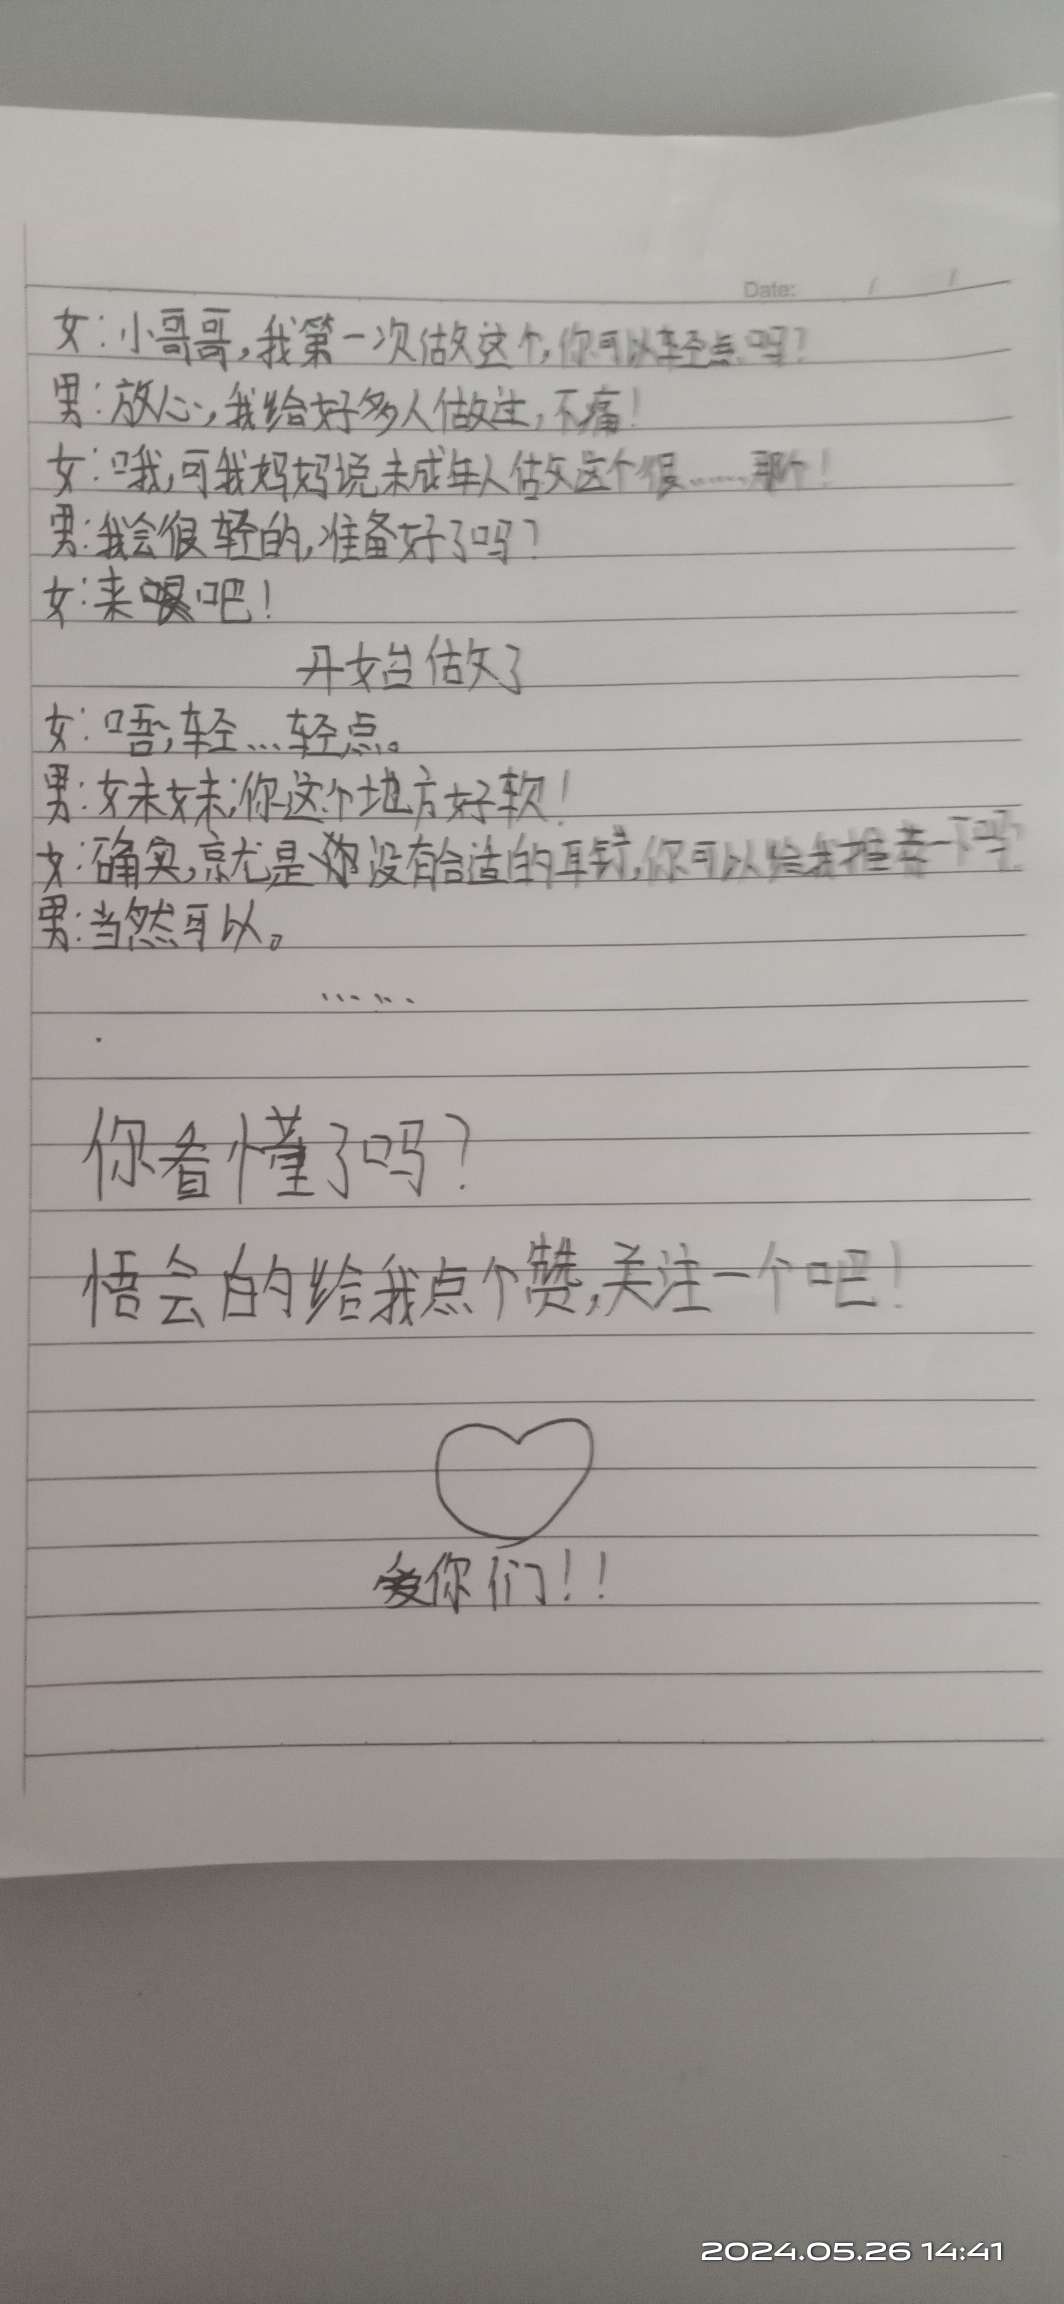 Date: / /
女：小哥哥，我第一次做这个，你可以轻点吗？
男：放心，我给好多人做过，不痛！
女：哦，可我妈妈说未成年人做这个很……那个！
男：我会很轻的，准备好了吗？
女：来吧！
开始做了
女：唔，轻…轻点。
男：妹妹，你这个地方好软！
女：确实，就是没有合适的耳钉，你可以给我推荐一下吗
男：当然可以。
……
你看懂了吗？
悟会的给我点个赞，关注一个吧！
爱你们！！
2024.05.26 14:41